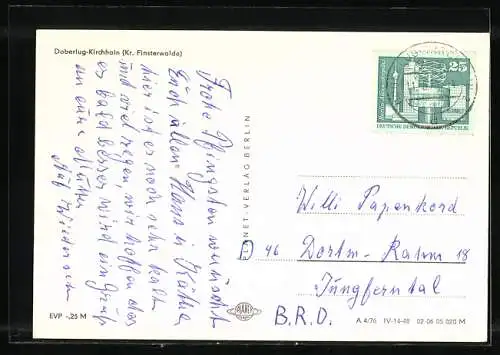 Doberlug-Kirchhain (Kr. Finsterwalde)
Frohe Pfingsten wünscht
Euch allen Hans u. Käthe
hier ist es noch sehr kalt
und viel regen, wir hoffen das
es bald besser wird ein Gruß
an eure Mutter
Auf Wiedersehn
PLANET-VERLAG BERLIN
25
DEUTSCHE DEMOKRATISCHE REPUBLIK
Willi Papenkord
D 46 Dortm.-Rahm 18
Jungferntal
B.R.D.
EVP -,25 M
PLANET
A 4/76 IV-14-48 02 06 05 020 M